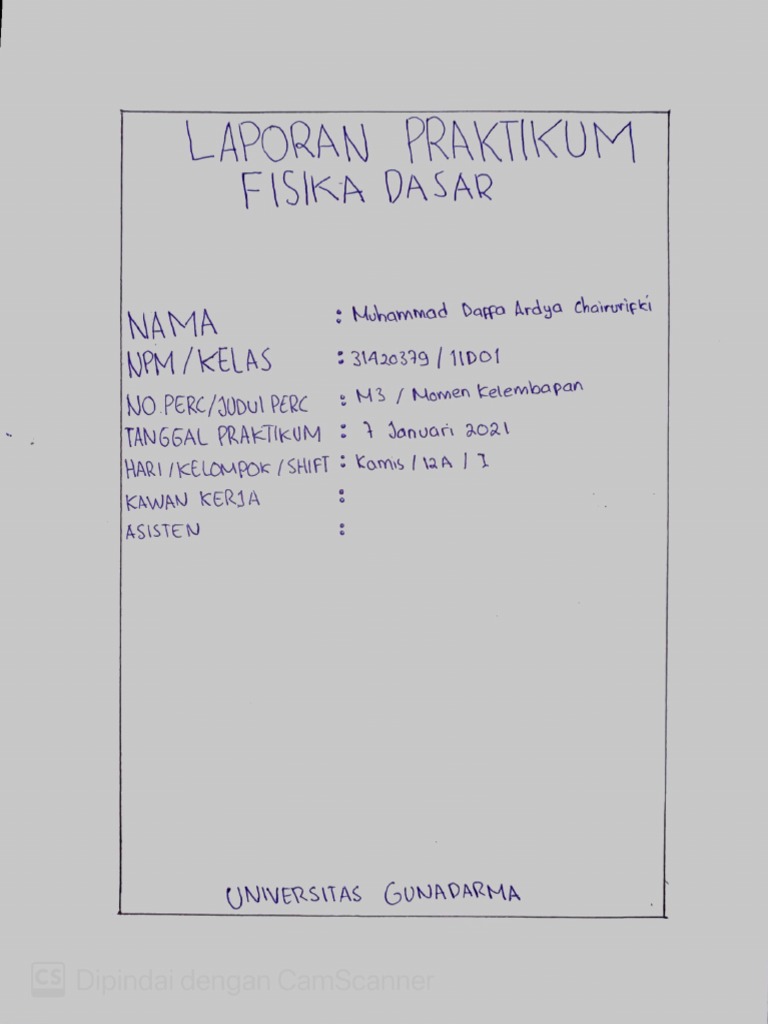 LAPORAN PRAKTIKUM
FISIKA DASAR
NAMA : Muhammad Daffa Ardya Chairurifki
NPM/KELAS : 31420379 / 1ID01
NO.PERC/JUDUL PERC : M3 / Momen Kelembapan
TANGGAL PRAKTIKUM : 7 Januari 2021
HARI/KELOMPOK/SHIFT : Kamis / 12A / I
KAWAN KERJA :
ASISTEN :
UNIVERSITAS GUNADARMA
CS Dipindai dengan CamScanner